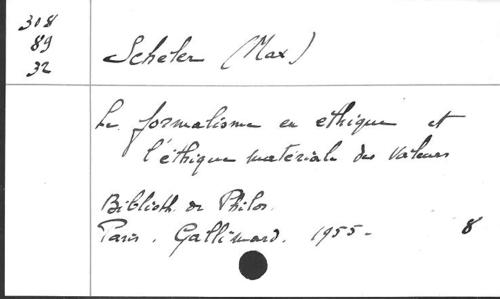 308
89
32
Scheler (Max)
Le formalisme en éthique et
l'éthique matériale des valeurs
Biblioth. de Philos.
Paris. Gallimard. 1955-
8